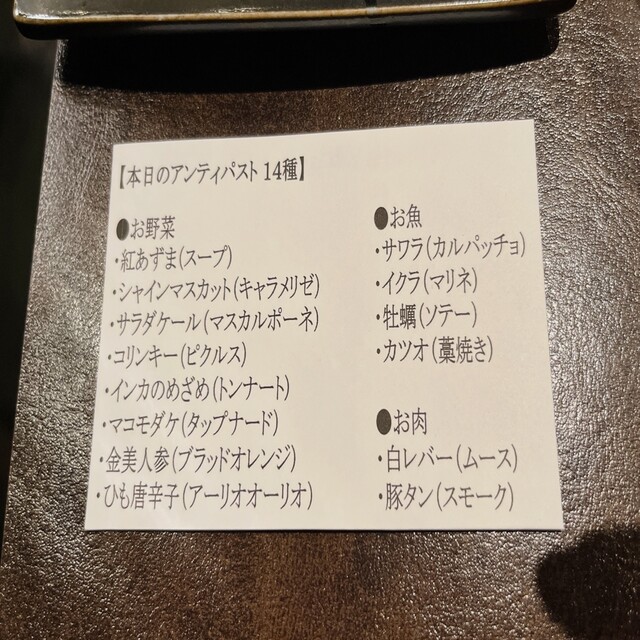 【本日のアンティパスト 14種】
●お野菜
・紅あずま(スープ)
・シャインマスカット(キャラメリゼ)
・サラダケール(マスカルポーネ)
・コリンキー(ピクルス)
・インカのめざめ(トンナート)
・マコモダケ(タップナード)
・金美人参(ブラッドオレンジ)
・ひも唐辛子(アーリオオーリオ)
●お魚
・サワラ(カルパッチョ)
・イクラ(マリネ)
・牡蠣(ソテー)
・カツオ(藁焼き)
●お肉
・白レバー(ムース)
・豚タン(スモーク)